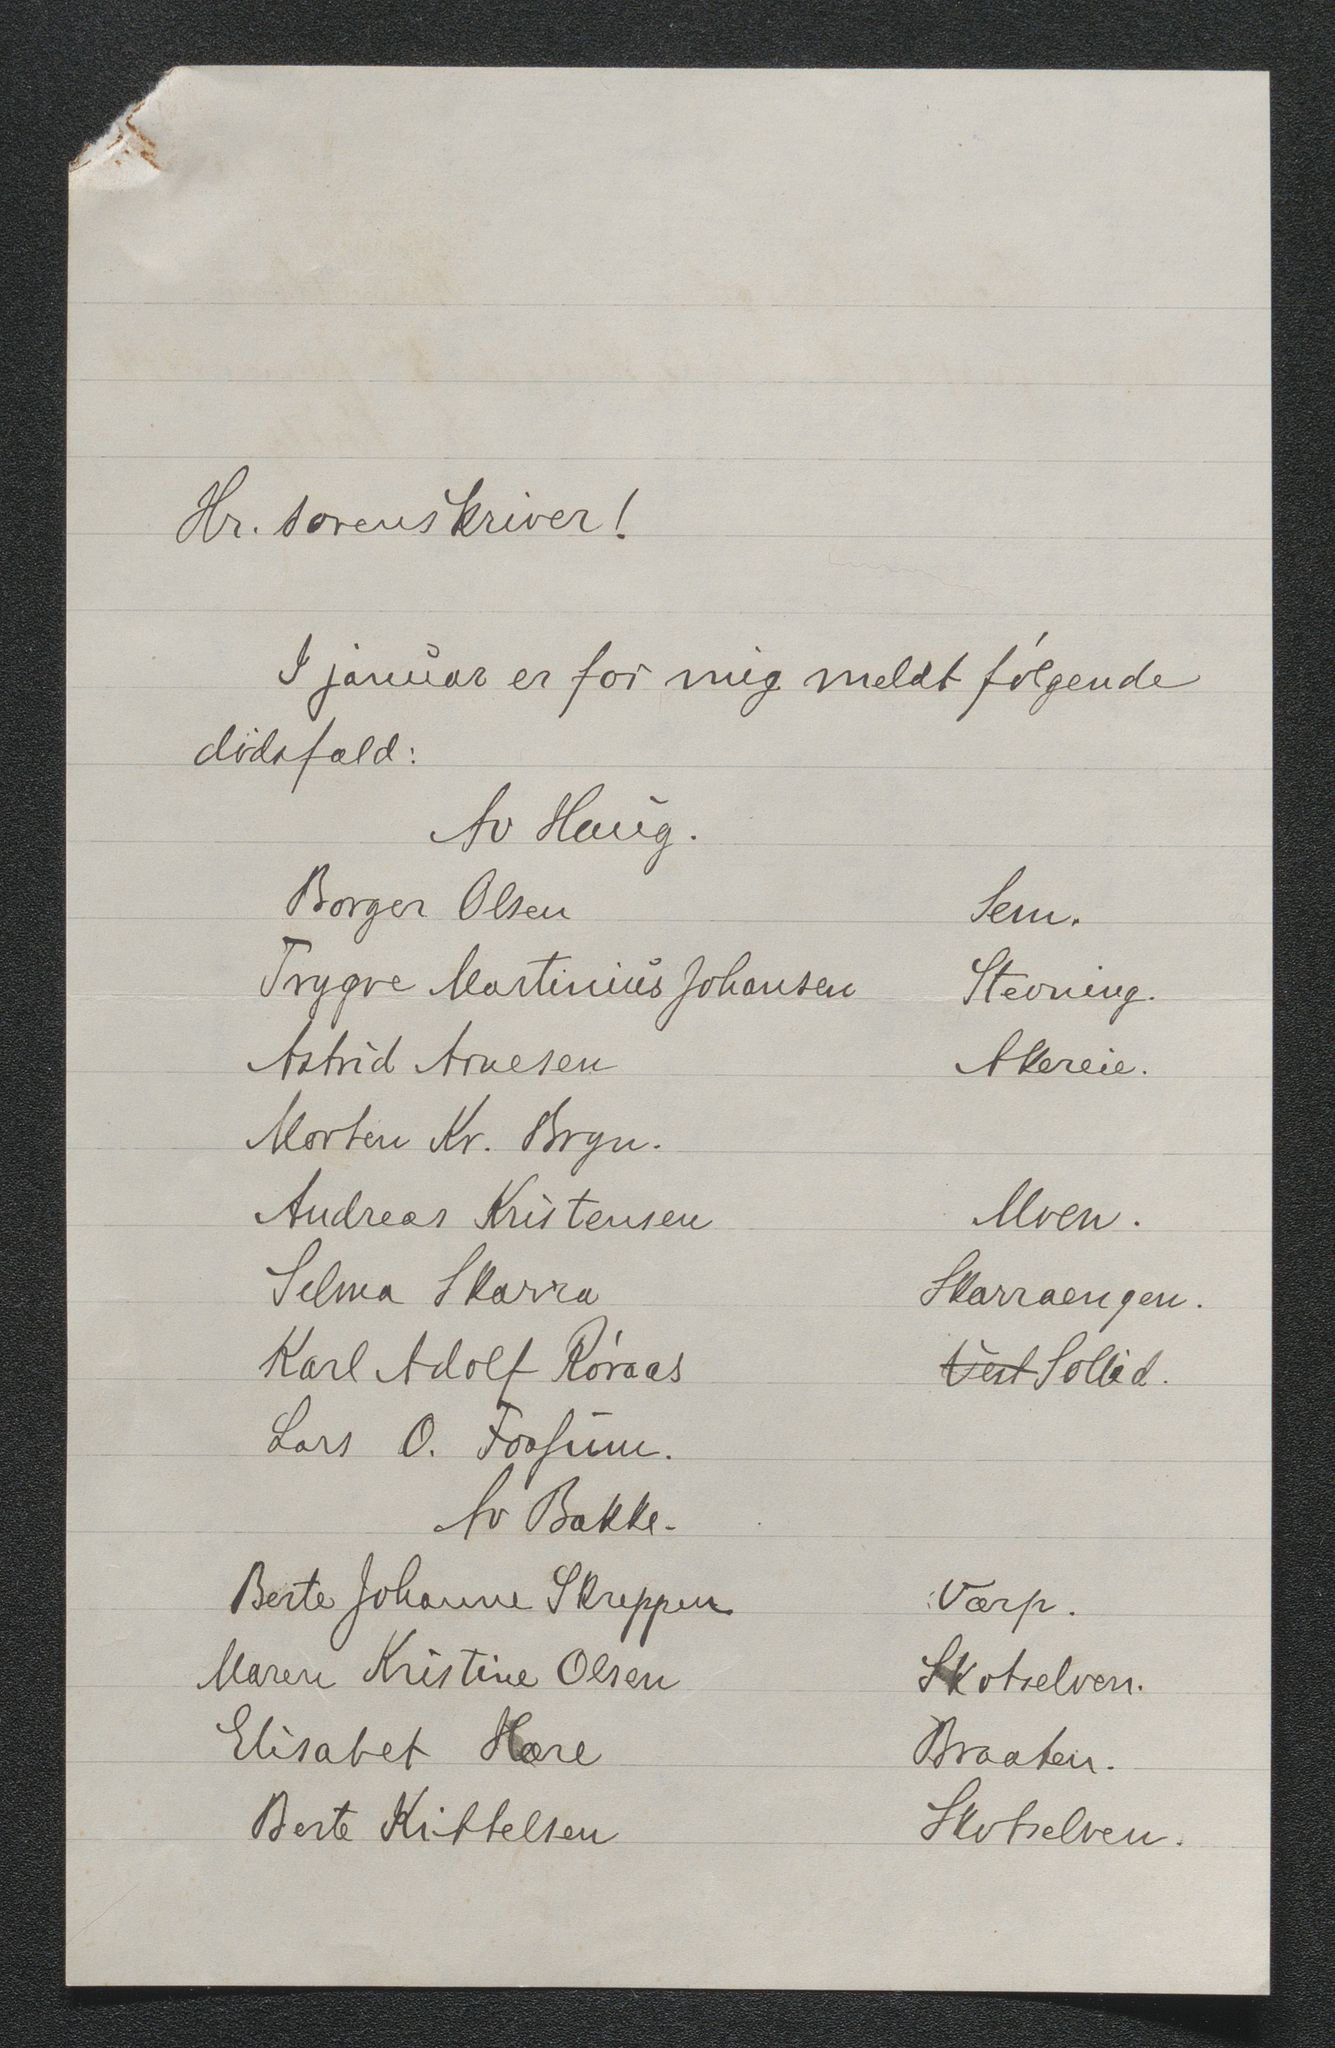 Hr. sorenskriver!
I januar er for mig meldt følgende
dødsfald:
Av Haug.
Borger Olsen Sem.
Trygve Martinius Johansen Stevning.
Astrid Arnesen Akereie.
Morten Kr. Bryn.
Andreas Kristensen Moen.
Selma Skarra Skarraengen.
Karl Adolf Røraas Vest Sollid.
Lars O. Fossum.
Av Bakke.
Berte Johanne Skreppen Værp.
Maren Kristine Olsen Skotselven.
Elisabet Hære Braaten.
Berte Kittelsen Skotselven.